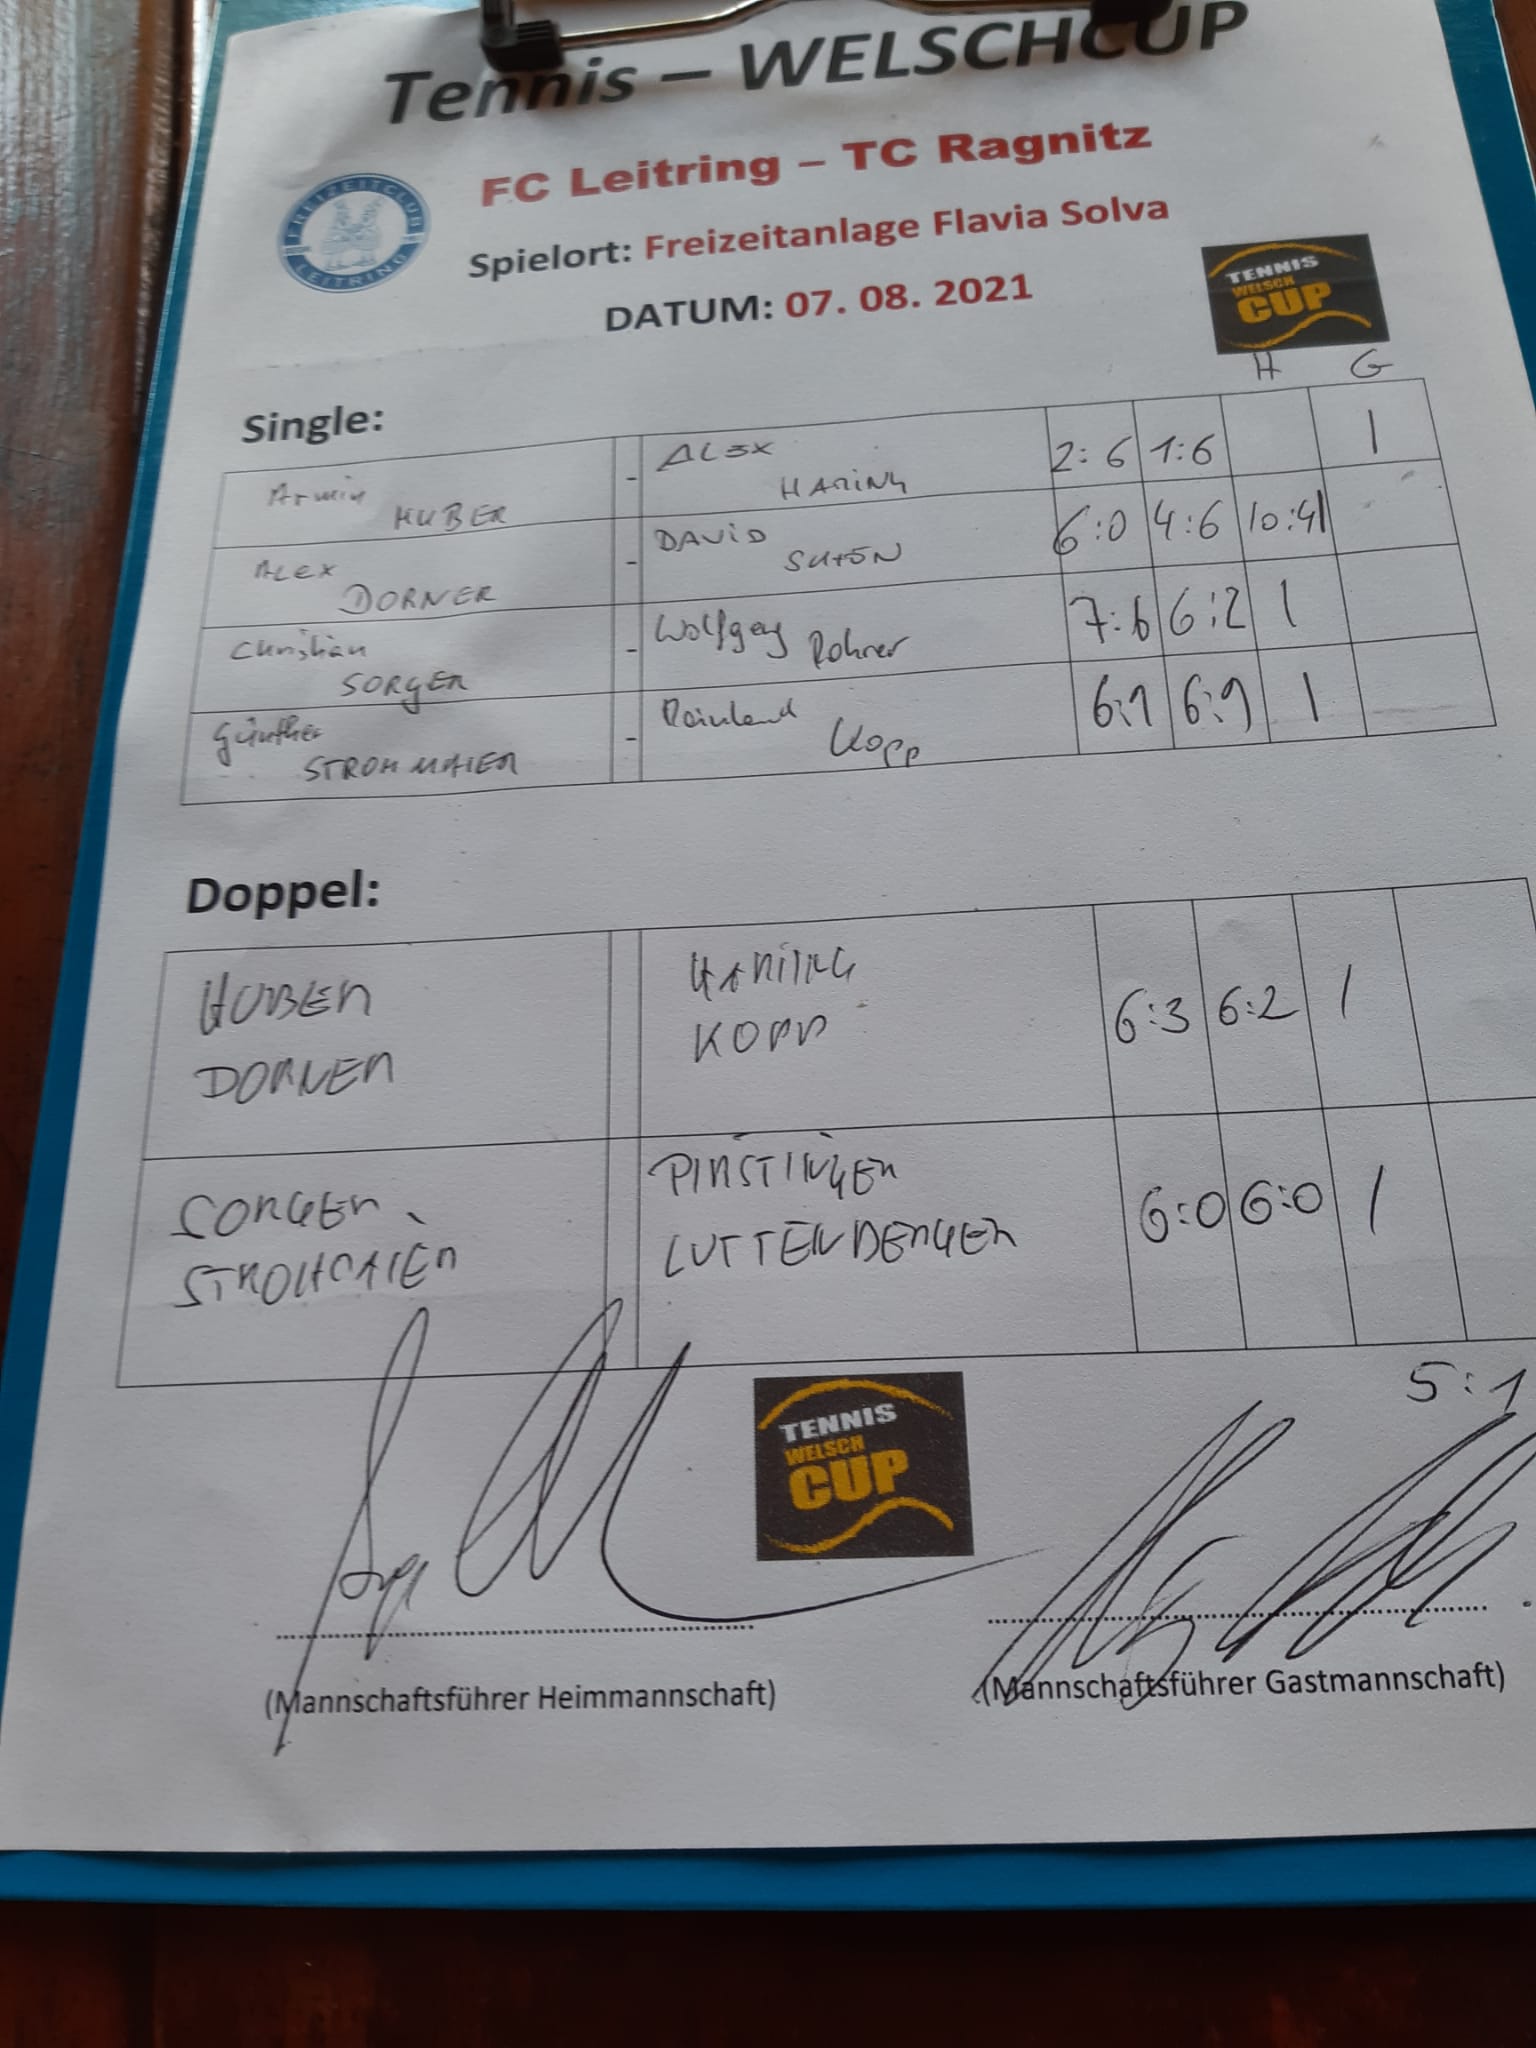 Tennis – WELSCHCUP
FC Leitring – TC Ragnitz
FREIZEITCLUB
LEITRING
Spielort: Freizeitanlage Flavia Solva
DATUM: 07. 08. 2021
TENNIS
WELSCH
CUP
H G
Single:
Armin HUBER - ALEX HARING 2:6 1:6 1
ALEX DORNER - DAVID SCHÖN 6:0 4:6 10:4 1
Christian SORGER - Wolfgang Rohrer 7:6 6:2 1
Günther STROHMAIER - Kopp 6:1 6:1 1
Doppel:
HUBER HARING
DORNER KOPP 6:3 6:2 1
SORGER PIRSTINGER
STROHMAIER LUTTENBERGER 6:0 6:0 1
5:1
TENNIS
WELSCH
CUP
(Mannschaftsführer Heimmannschaft) (Mannschaftsführer Gastmannschaft)